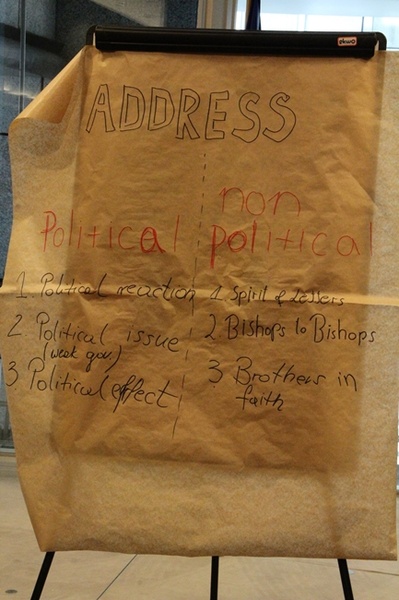 ADDRESS
Political
non
political
1. Political reaction
2. Political issue
(weak gov.)
3 Political effect
1 Spirit of Letters
2 Bishops to Bishops
3 Brothers in
faith